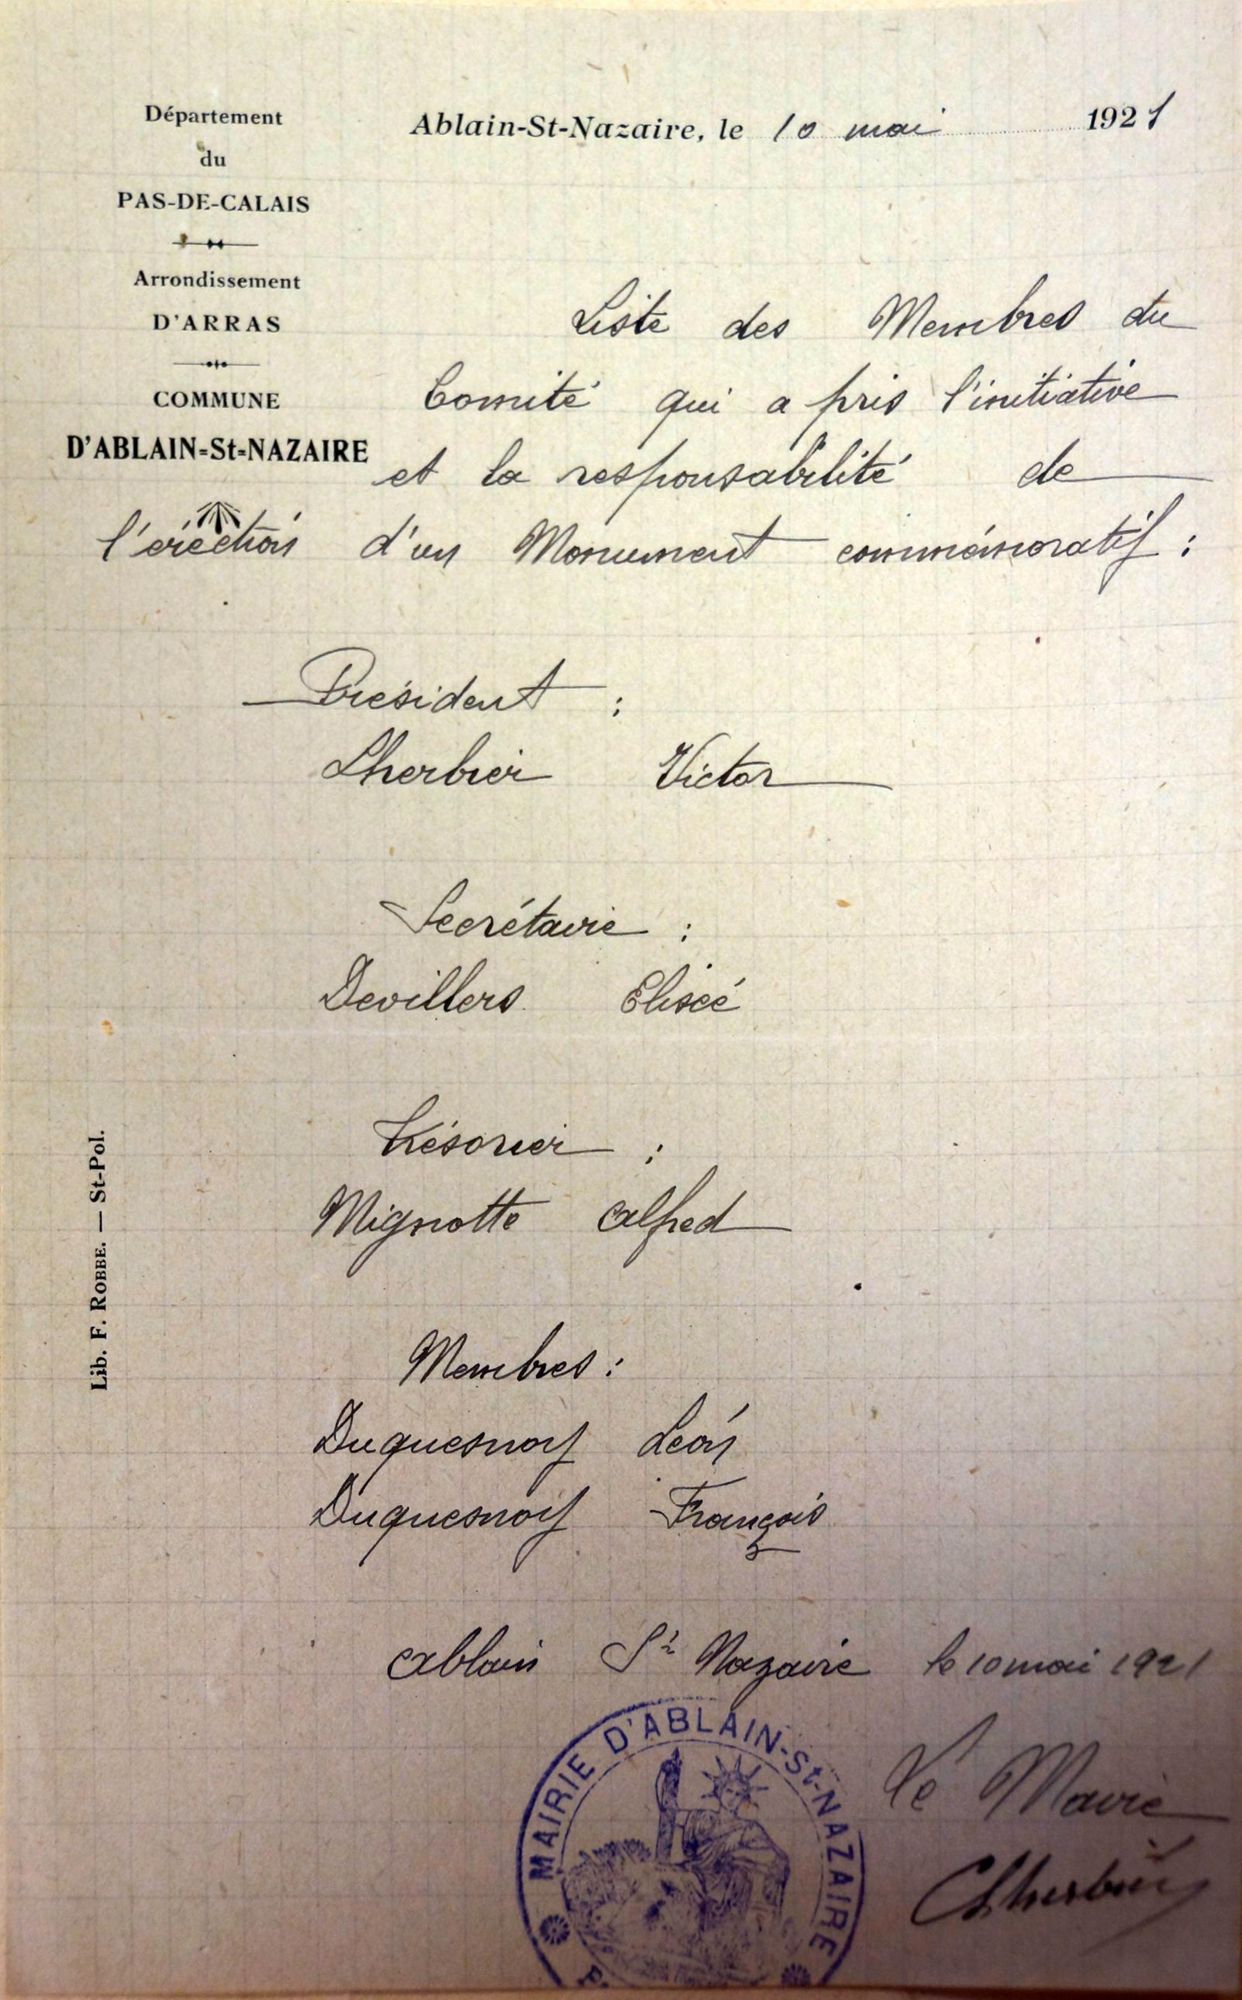 Département
du
PAS-DE-CALAIS
Arrondissement
D'ARRAS
COMMUNE
D'ABLAIN=St=NAZAIRE
Ablain-St-Nazaire, le 10 mai 1921
Liste des Membres du
Comité qui a pris l'initiative
et la responsabilité de
l'érection d'un Monument commémoratif :
Président :
Lherbier Victor
Secrétaire :
Devillers Elisée
Trésorier :
Mignotte Alfred
Membres :
Duquesnoy Léon
Duquesnoy François
Lib. F. ROBBE. — St-Pol.
Ablain St Nazaire le 10 mai 1921
Le Maire
Lherbier
MAIRIE D'ABLAIN-St-NAZAIRE